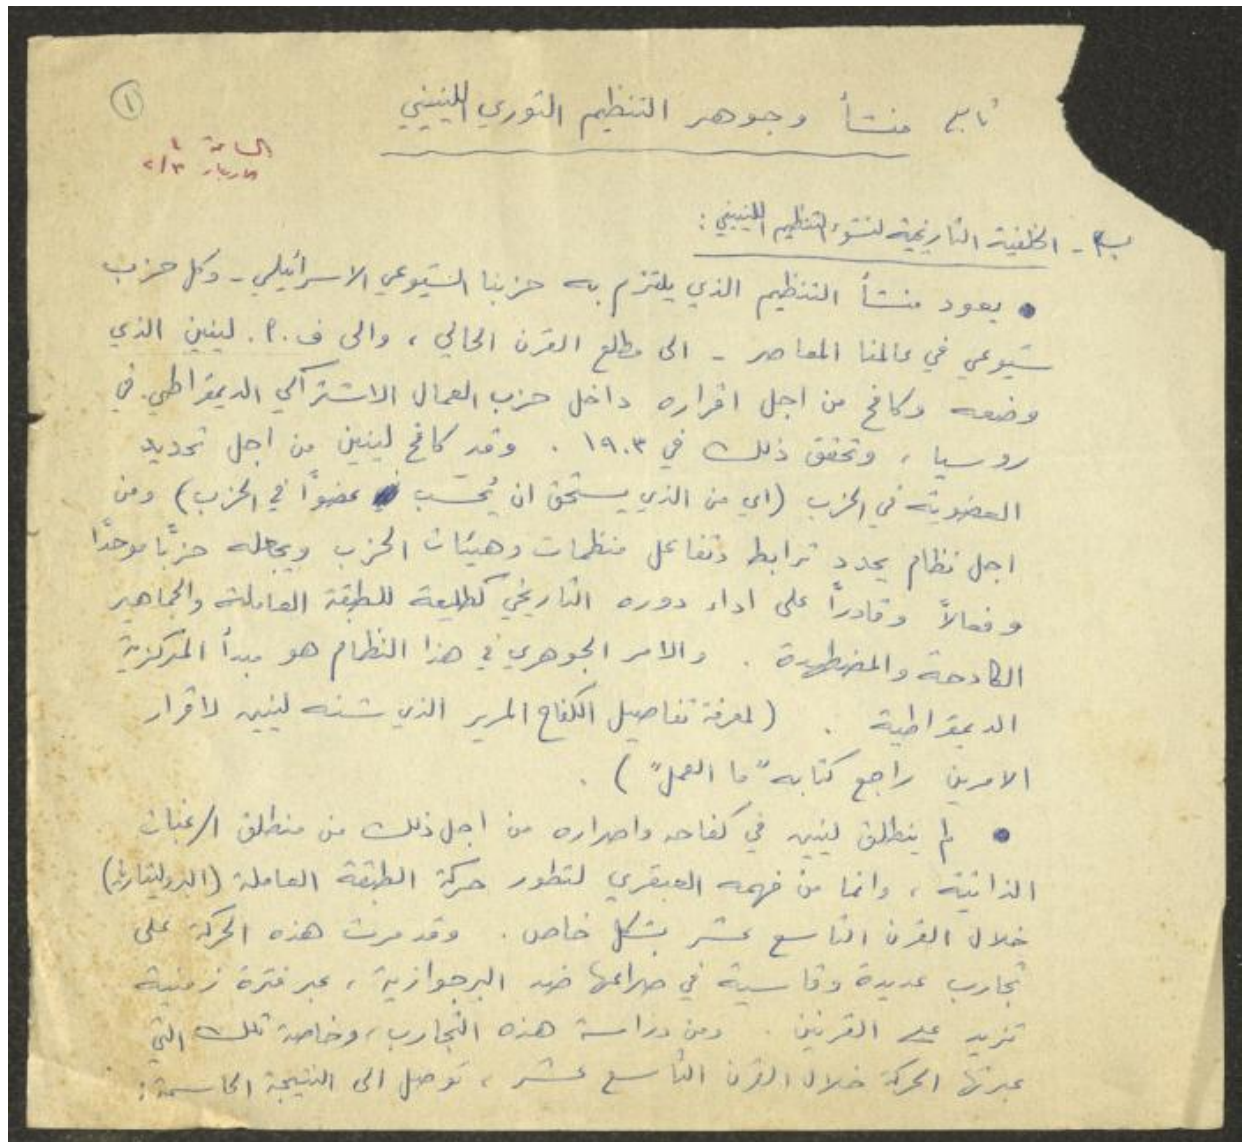 تابع منشأ وجوهر التنظيم الثوري اللينيني
١
الساعة ٤
الاربعاء ٢/٣
ب - الخلفية التاريخية لنشوء التنظيم اللينيني :
● يعود منشأ التنظيم الذي يلتزم به حزبنا الشيوعي الاسرائيلي - وكل حزب
شيوعي في عالمنا المعاصر - الى مطلع القرن الحالي ، والى ف . أ . لينين الذي
وضعه وكافح من اجل اقراره داخل حزب العمال الاشتراكي الديمقراطي في
روسيا ، وتحقق ذلك في ١٩٠٣ . وقد كافح لينين من اجل تحديد
العضوية في الحزب (اي من الذي يستحق ان يُحسب عضوًا في الحزب) ومن
اجل نظام يحدد ترابط وتفاعل منظمات وهيئات الحزب ويجعله حزبًا موحدًا
وفعالاً وقادراً على اداء دوره التاريخي كطليعة للطبقة العاملة والجماهير
الكادحة والمضطهدة . والامر الجوهري في هذا النظام هو مبدأ المركزية
الديمقراطية . (لمعرفة تفاصيل الكفاح المرير الذي شنه لينين لاقرار
الامرين راجع كتابه "ما العمل") .
● لم ينطلق لينين في كفاحه واصراره من اجل ذلك من منطلق الرغبات
الذاتية ، وانما من فهمه العبقري لتطور حركة الطبقة العاملة (البروليتاريا)
خلال القرن التاسع عشر بشكل خاص . وقد مرت هذه الحركة على
تجارب عديدة وقاسية في صراعها ضد البرجوازية ، عبر فترة زمنية
تزيد على القرنين . ومن دراسة هذه التجارب ، وخاصة تلك التي
عبرتها الحركة خلال القرن التاسع عشر ، توصل الى النتيجة الحاسمة :